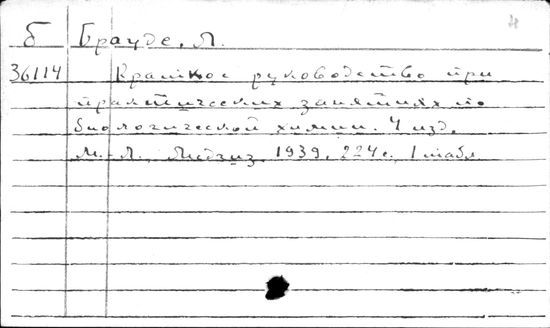 Б Брауде, Л.
36114 Краткое руководство при
практических занятиях по
биологической химии. 4 изд.
М.-Л. Медгиз 1939, 224 с. 1 табл